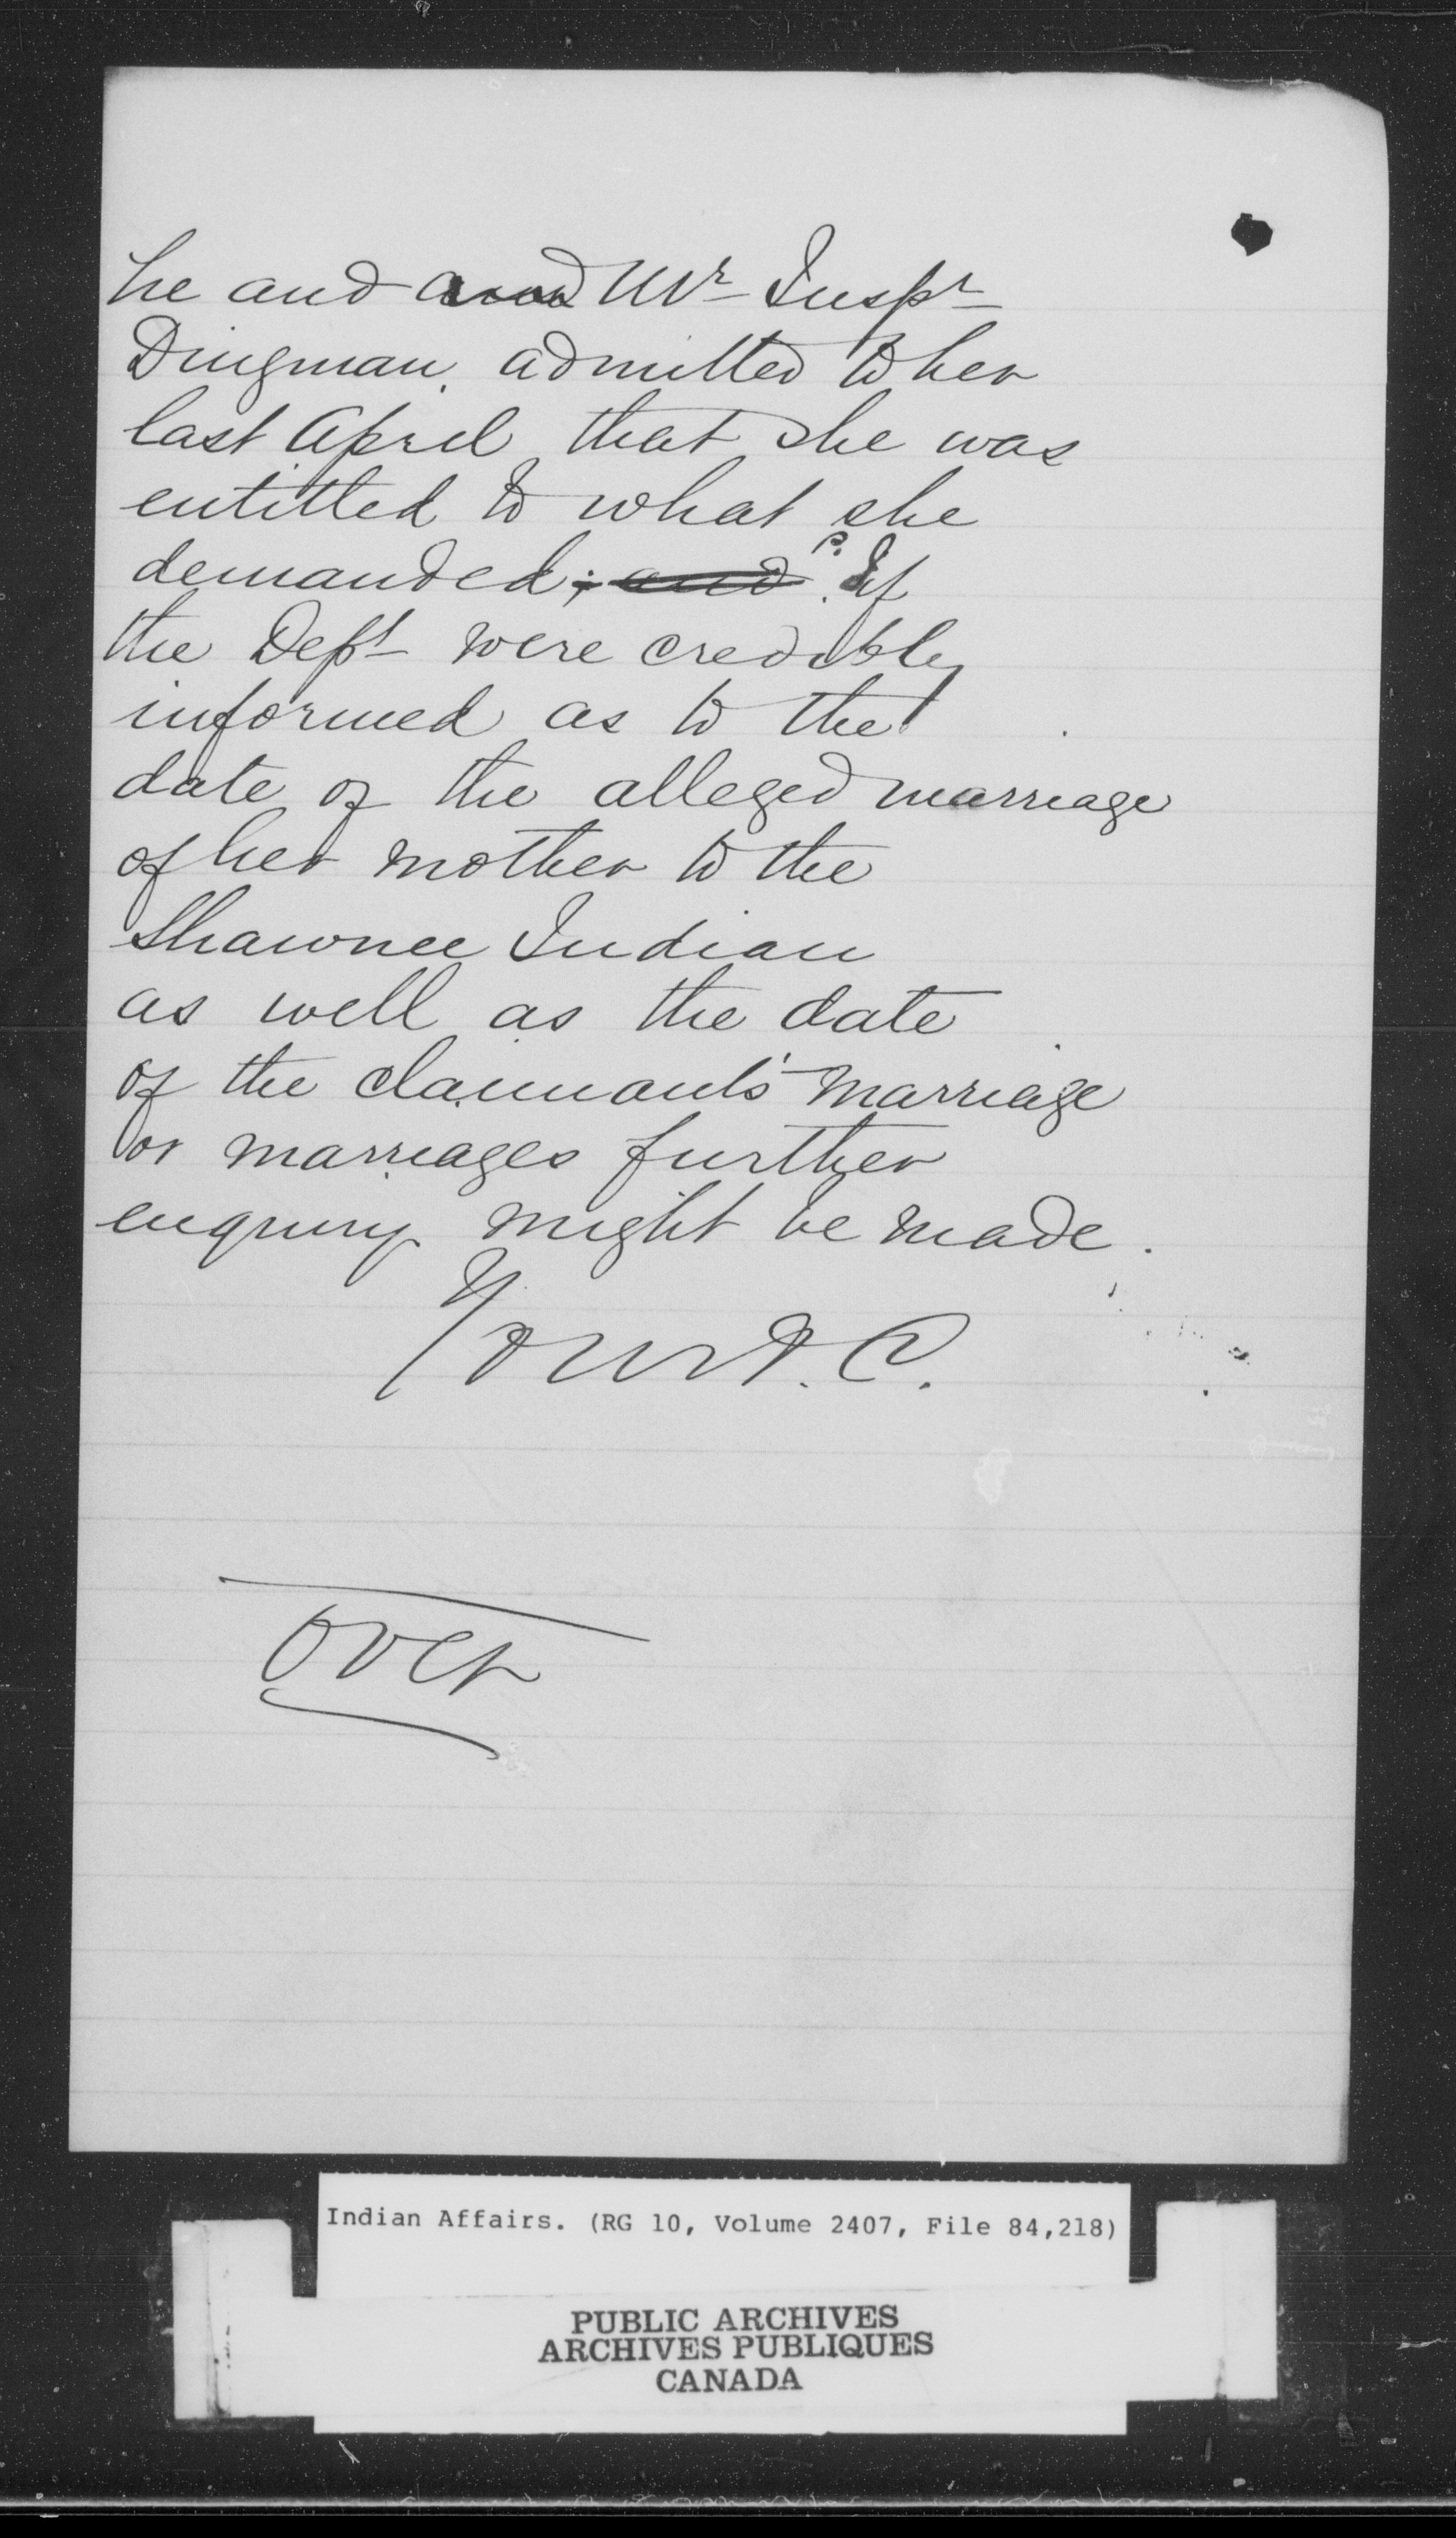 he and and Mr Inspr
Dingman admitted to her
last April that she was
entitled to what she
demanded; and. If
the Dept were credibly
informed as to the
date of the alleged marriage
of her mother to the
Shawnee Indian
as well as the date
of the claimant's marriage
or marriages further
enquiry might be made.
Over
Indian Affairs. (RG 10, Volume 2407, File 84,218)
PUBLIC ARCHIVES
ARCHIVES PUBLIQUES
CANADA